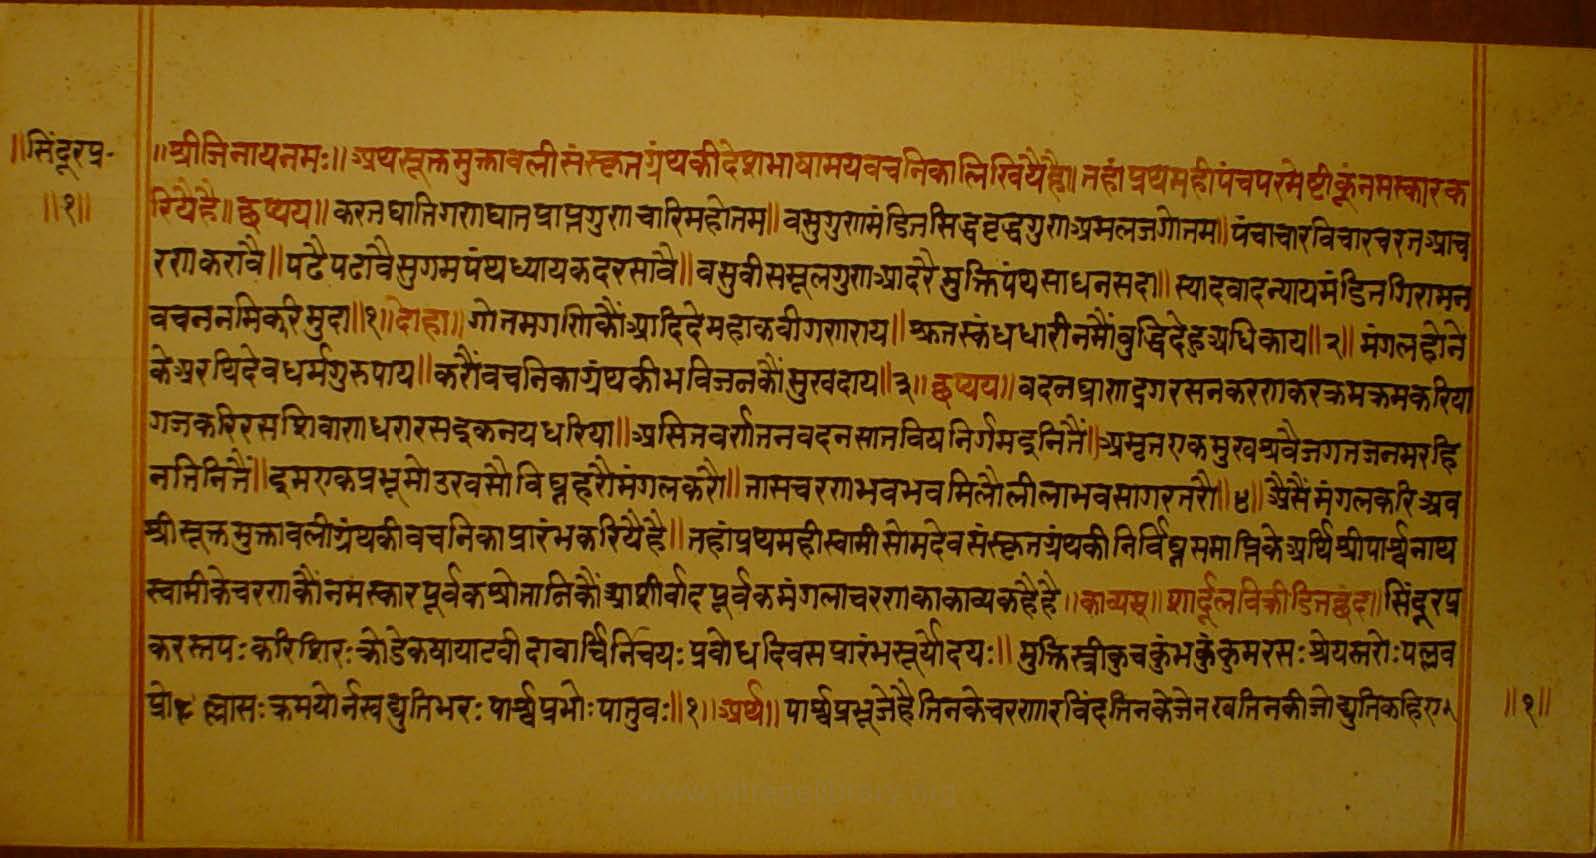 ॥सिंदूरप्र-
॥१॥
॥श्रीजिनायनमः॥अथसूक्तमुक्तावलीसंस्कृतग्रंथकीदेशभाषामयवचनिकालिखियैहै॥तहांप्रथमहीपंचपरमेष्टीकूंनमस्कारक
रियैहै॥छप्यय॥करतघातिगणघातप्राप्तगुणचारिमहोतम॥वसुगुणमंडितसिद्धहृद्धगुणअमलजगोतम॥पंचाचारविचारचरतआच
रणकरावै॥पढैपढावैसुगमपंथध्यायकदरसावै॥वसुवीसमूलगुणआदरैमुक्तिपंथसाधनसदा॥स्यादवादन्यायमंडितगिरामन
वचतनमिकरिमुदा॥१॥दोहा॥गोतमगणिकौंआदिदेमहाकवीगणराय॥श्रुतस्कंधधारीनमौंवुद्धिदेहुअधिकाय॥२॥मंगलहोने
केअरथिदेवधर्मगुरुपाय॥करौंवचनिकाग्रंथकीभविजनकौंसुखदाय॥३॥छप्यय॥वदनघ्राणद्रगरसनकरणकरक्रमक्रमकरिया
गजकरिरसशिवाणधरारसइकनयधरिया॥असितवर्णतनवदनसातवियनिर्गमइनितैं॥अमृतएकमुखश्रवैजगतजनमरहि
नतिनितैं॥इमएकप्रभूमोउरवसौविघ्नहरौमंगलकरौ॥तासचरणभवभवमिलौलीलाभवसागरतरौ॥४॥अैसैंमंगलकरिअव
श्रीसूक्तमुक्तावलीग्रंथकीवचनिकाप्रारंभकरियैहै॥तहांप्रथमहीस्वामीसोमदेवसंस्कृतग्रंथकीनिर्विघ्नसमाप्तिकेअर्थिश्रीपार्श्वनाथ
स्वामीकेचरणकौंनमस्कारपूर्वकश्रोतानिकौंआशीर्वादपूर्वकमंगलाचरणकाकाव्यकहैहै॥काव्यम्॥शार्दूलविक्रीडितछंद॥सिंदूरप्र
करस्तपःकरिशिरःक्रोडेकषायाटवीदावार्चिर्निचयःप्रवोधदिवसप्रारंभसूर्योदयः॥मुक्तिस्त्रीकुचकुंभकुंकुमरसःश्रेयस्तरोःपल्लव
प्रोल्लासःक्रमयोर्नखद्युतिभरःपार्श्वप्रभोःपातुवः॥१॥अर्थ॥पार्श्वप्रभूजेहैतिनकेचरणारविंदतिनकेजेनखतिनकीजोद्युतिकहिए
॥१॥